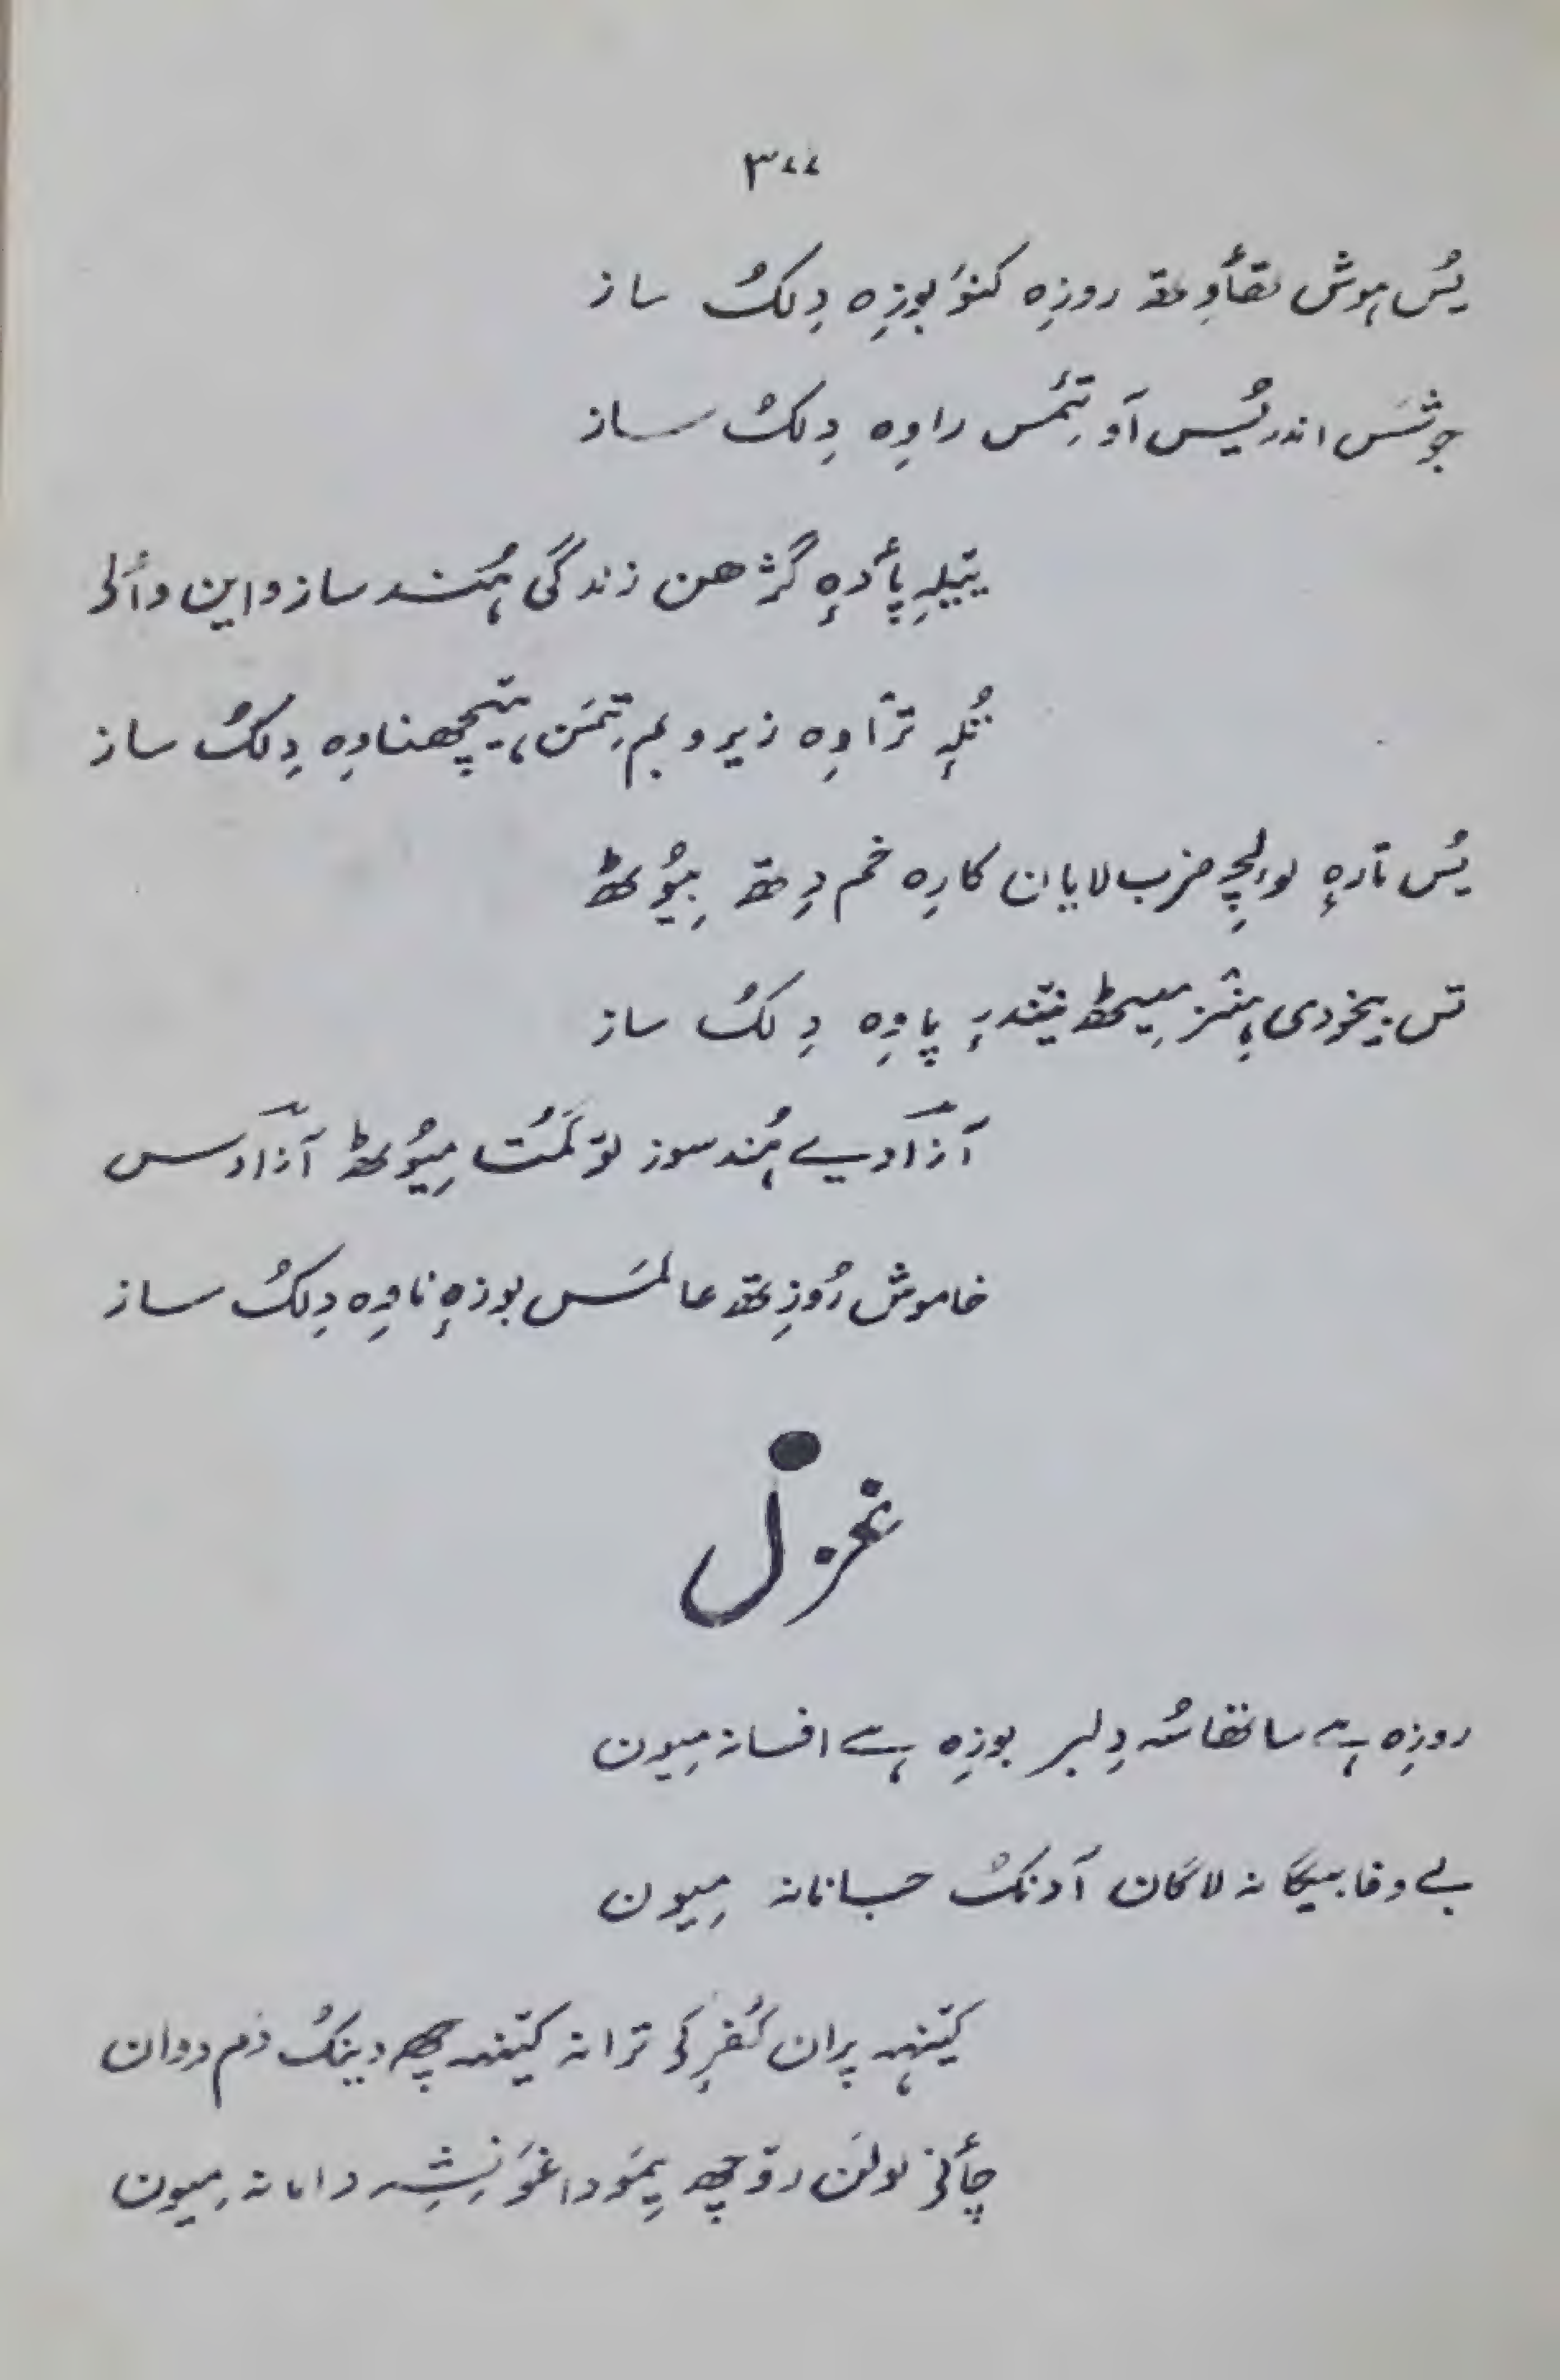 ۳۷۷
یُس ہوش تھأوِتھ روزِہ کنَو بوزِہ دِلکُ ساز
جوشَس اندر یُس آو تِمٔس راوِہ دِلکُ ساز
ییٚلہِ پأدہٕ گژھن زندگی ہُند ساز واین وألؠ
تُلہِ ترٛاوِہ زیر و بم تِمَن ہیٚچھناوِہ دِلکُ ساز
یُس تارہٕ لولچہِ ضرب لایان کارِہ خم دِتھ بیوٗٹھ
تس بیخودی ہِنٛز میٖٹھ نیٚندرٕ پاوِہ دِلکُ ساز
آزادیے ہُند سوز توٚلمُت میوٗٹھ آزادس
خاموش رُوزِتھ عالمَس بوزہٕ ناوِہ دِلکُ ساز
غزل
روزِہ ہے ساتھاسُہ دِلبر بوزِہ ہے افسانہ میون
بے وفا بیگانہ لاگان آونکُ جانانہ میون
کیٚنہہ پران کُفرٕکؠ ترانہ کیٚنہہ چھِ دینکُ دَم دوان
چأنؠ لولَن روٚچھ یِمَو داغَو نِشِہ دامانہ میون